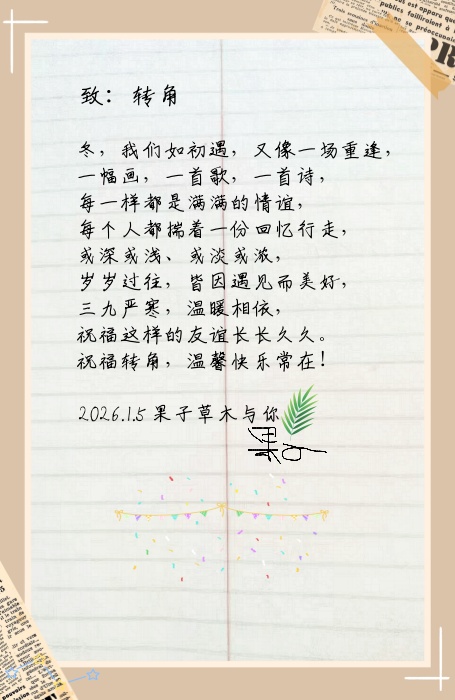 致：转角
冬，我们如初遇，又像一场重逢，
一幅画，一首歌，一首诗，
每一样都是满满的情谊，
每个人都揣着一份回忆行走，
或深或浅、或淡或浓，
岁岁过往，皆因遇见而美好，
三九严寒，温暖相依，
祝福这样的友谊长长久久。
祝福转角，温馨快乐常在！
2026.1.5 果子草木与你
果子